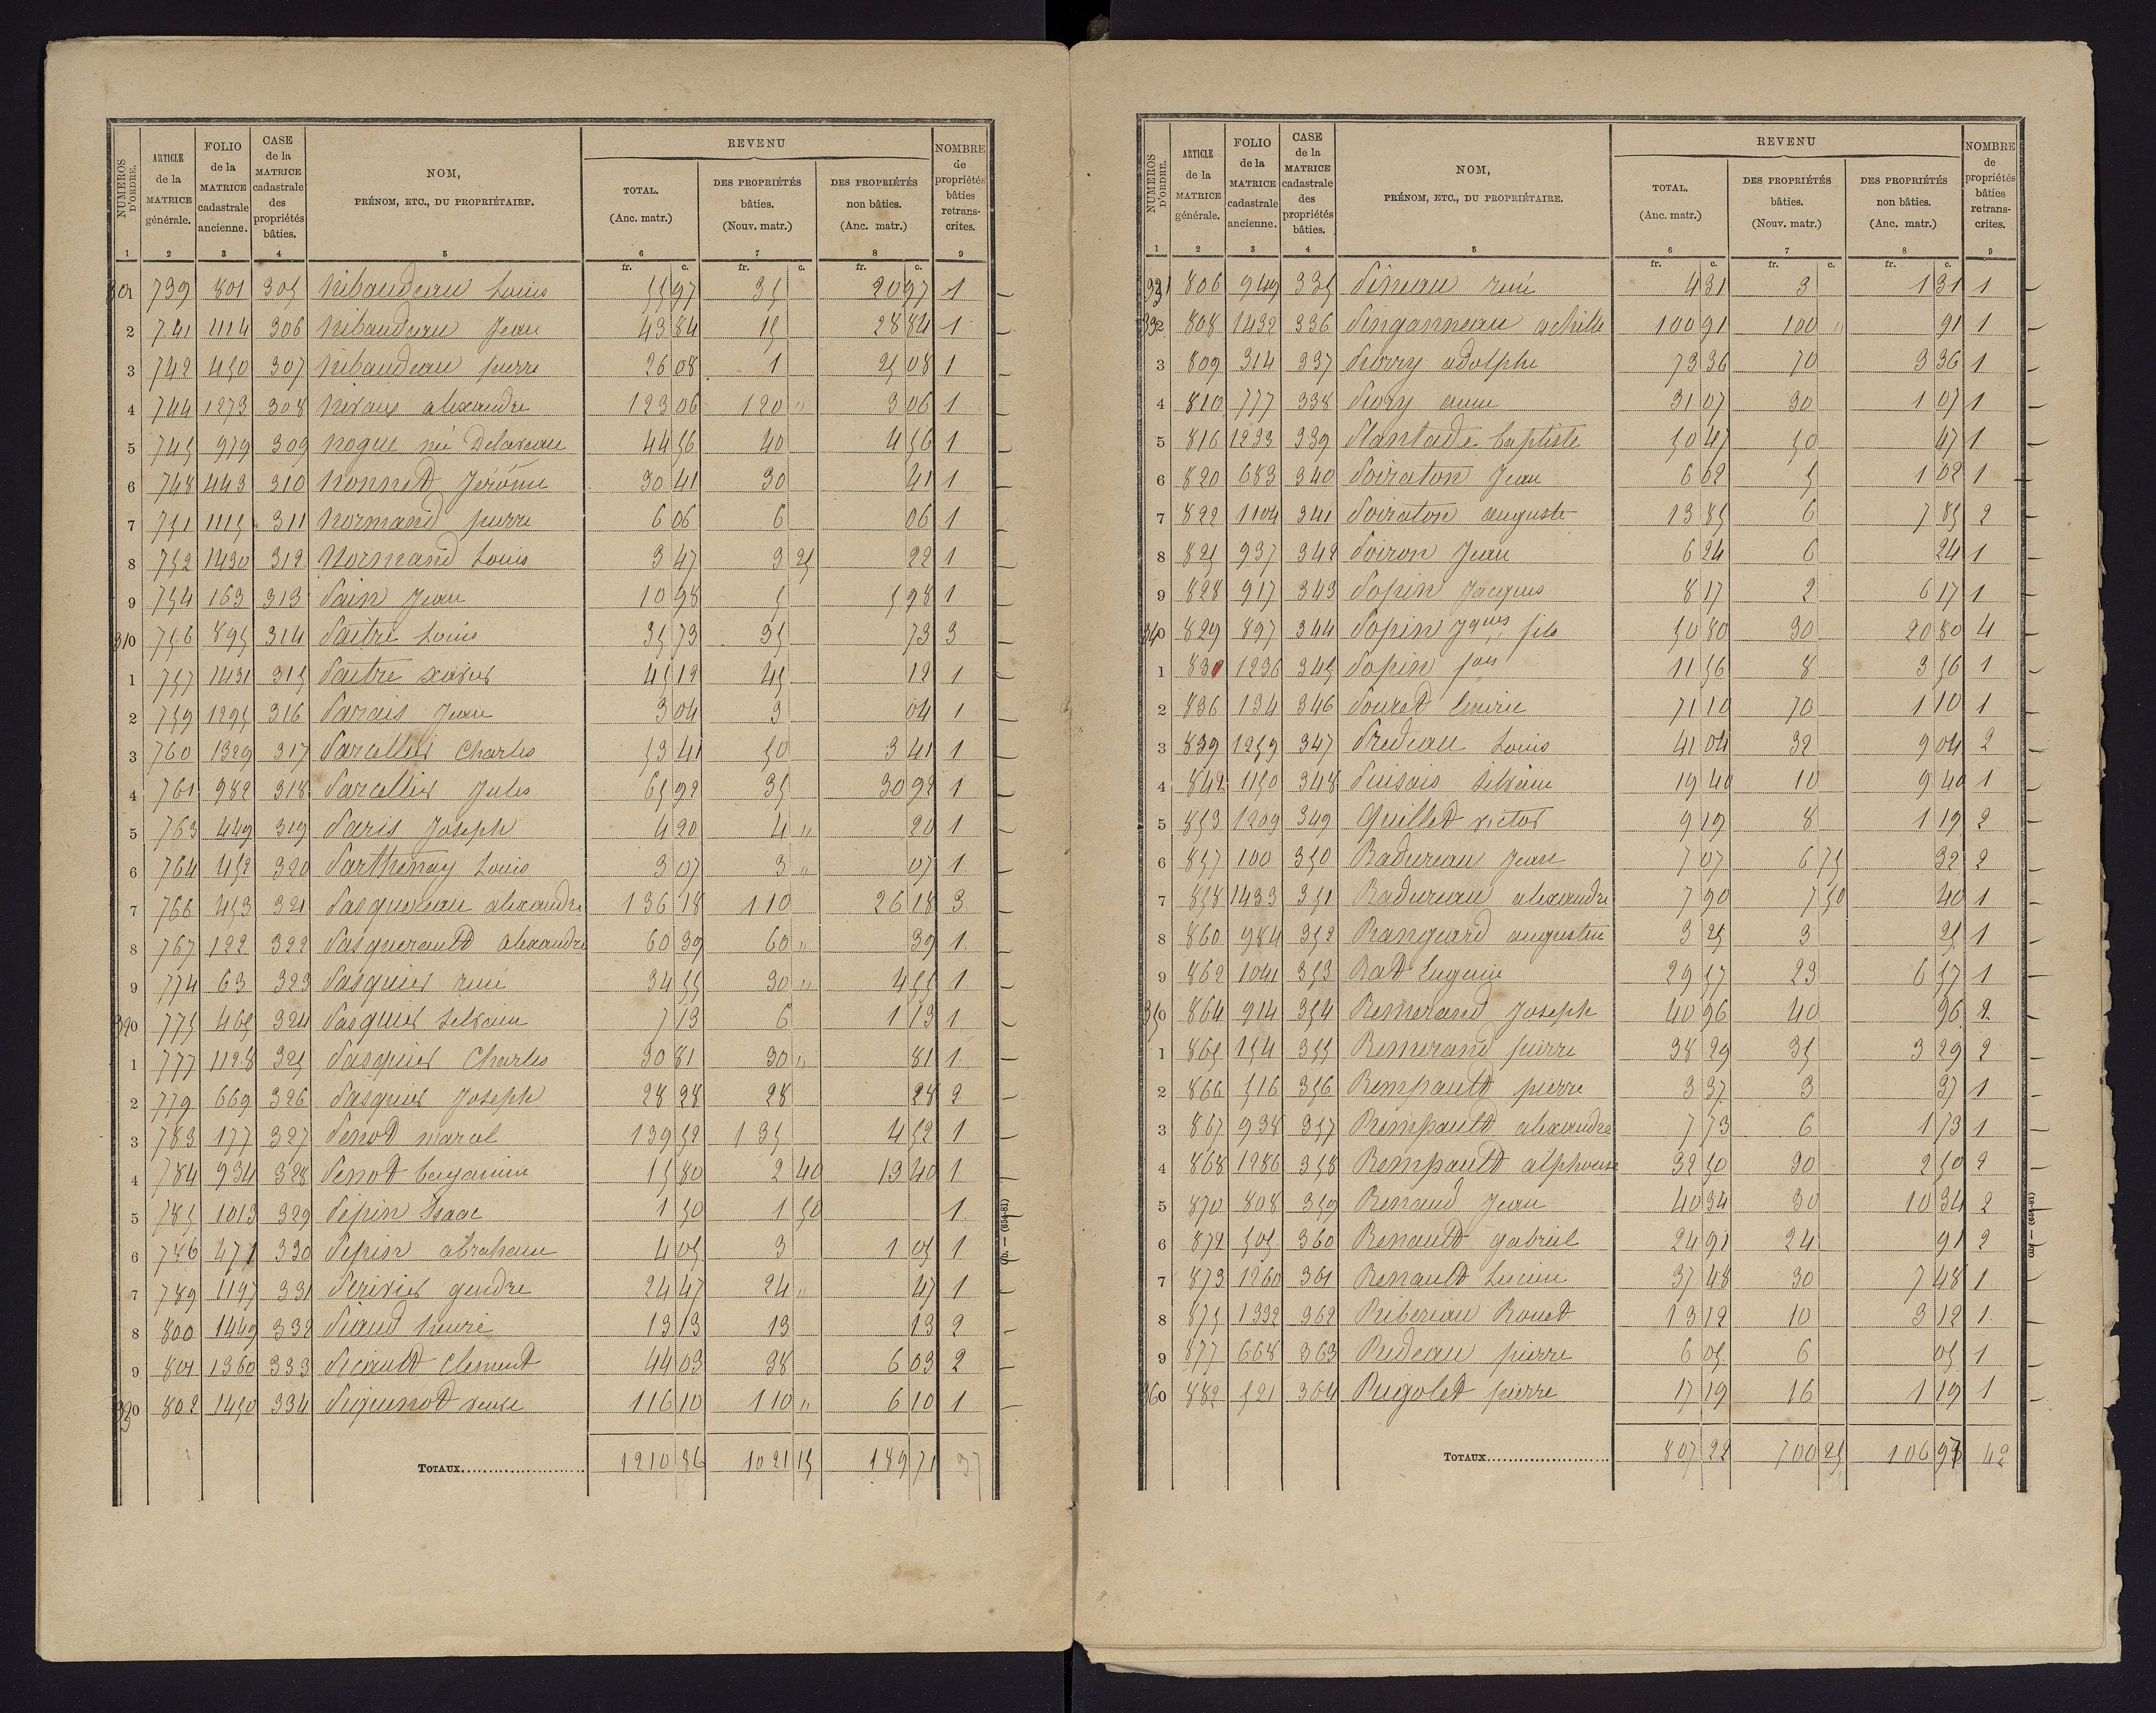 NUMEROS D'ORDRE. | ARTICLE de la MATRICE générale. | FOLIO de la MATRICE cadastrale ancienne. | CASE de la MATRICE cadastrale des propriétés bâties. | NOM, PRÉNOM, ETC., DU PROPRIÉTAIRE. | REVENU TOTAL. (Anc. matr.) | DES PROPRIÉTÉS bâties. (Nouv. matr.) | DES PROPRIÉTÉS non bâties. (Anc. matr.) | NOMBRE de propriétés bâties retranscrites.
1 2 3 4 5 6 7 8 9
fr. c. fr. c. fr. c.
301 739 801 305 Nibaudeau Louis 55 97 35 20 97 1
2 741 1114 306 Nibaudeau Jean 43 84 15 28 84 1
3 742 450 307 Nibaudeau pierre 26 08 1 25 08 1
4 744 1273 308 Nivaux alexandre 123 06 120 " 3 06 1
5 745 979 309 Nogue né Delaveau 44 56 40 4 56 1
6 748 443 310 Nonnet Jérôme 30 41 30 41 1
7 751 1115 311 Normand pierre 6 06 6 06 1
8 752 1430 312 Normand Louis 3 47 3 25 22 1
9 754 163 313 Pain Jean 10 98 5 5 98 1
310 756 895 314 Paitre Louis 35 73 35 73 3
1 757 1431 315 Paitre xavier 45 12 45 12 1
2 759 1295 316 Parais Jean 3 04 3 04 1
3 760 1329 317 Parcellier Charles 53 41 50 3 41 1
4 761 982 318 Parcellier Jules 65 92 35 30 92 1
5 763 449 319 Paris Joseph 4 20 4 " 20 1
6 764 452 320 Parthenay Louis 3 07 3 " 07 1
7 766 453 321 Pasquereau alexandre 136 18 110 26 18 3
8 767 122 322 Pasquerault alexandre 60 39 60 " 39 1
9 774 63 323 Pasquier rené 34 55 30 " 4 55 1
320 775 465 324 Pasquier Silvain 7 13 6 1 13 1
1 777 1128 325 Pasquier Charles 30 81 30 " 81 1
2 779 669 326 Pasquier Joseph 28 28 28 28 2
3 783 177 327 Penot marcel 139 52 135 4 52 1
4 784 934 328 Penot benjamin 15 80 2 40 13 40 1
5 785 1013 329 Pepin Isaac 1 50 1 50 1
6 786 471 330 Pepin abraham 4 05 3 1 05 1
7 789 1197 331 Perivier gendre 24 47 24 " 47 1
8 800 1449 332 Piaud heuré 13 13 13 13 2
9 801 1360 333 Picault Clement 44 03 38 6 03 2
330 802 1450 334 Piquenot veuve 116 10 110 " 6 10 1
TOTAUX 1210 86 1021 15 189 71 37
Ch. — (654-81)
NUMEROS D'ORDRE. | ARTICLE de la MATRICE générale. | FOLIO de la MATRICE cadastrale ancienne. | CASE de la MATRICE cadastrale des propriétés bâties. | NOM, PRÉNOM, ETC., DU PROPRIÉTAIRE. | REVENU TOTAL. (Anc. matr.) | DES PROPRIÉTÉS bâties. (Nouv. matr.) | DES PROPRIÉTÉS non bâties. (Anc. matr.) | NOMBRE de propriétés bâties retranscrites.
1 2 3 4 5 6 7 8 9
fr. c. fr. c. fr. c.
331 806 949 335 Pineau rené 4 31 3 1 31 1
332 808 1432 336 Pinganneau achille 100 91 100 " 91 1
3 809 314 337 Piorry adolphe 73 36 70 3 36 1
4 810 777 338 Piory aimé 31 07 30 1 07 1
5 816 1223 339 Plantade baptiste 50 47 50 47 1
6 820 683 340 Poiraton Jean 6 62 5 1 62 1
7 822 1104 341 Poiraton auguste 13 85 6 7 85 2
8 825 937 342 Poiron Jean 6 24 6 24 1
9 828 917 343 Popin Jacques 8 17 2 6 17 1
340 829 897 344 Popin Jques fils 50 80 30 20 80 4
1 830 1236 345 Popin fois 11 56 8 3 56 1
2 836 134 346 Pouret 71 10 70 1 10 1
3 839 1259 347 Predeau Louis 41 04 32 9 04 2
4 842 1150 348 Puisais Silvain 19 40 10 9 40 1
5 853 1209 349 Quillet victor 9 19 8 1 19 2
6 857 100 350 Badureau Jean 7 07 6 75 32 2
7 858 1433 351 Badureau alexandre 7 90 7 50 40 1
8 860 984 352 Rangeard augustin 3 25 3 25 1
9 862 1041 353 Rat Eugène 29 57 23 6 57 1
350 864 914 354 Remerand Joseph 40 96 40 96 2
1 865 154 355 Remerand pierre 38 29 35 3 29 2
2 866 516 356 Rempault pierre 3 37 3 37 1
3 867 938 357 Rempault alexandre 7 73 6 1 73 1
4 868 1286 358 Rempault alphonse 32 50 30 2 50 2
5 870 808 359 Renaud Jean 40 34 30 10 34 2
6 872 505 360 Renault gabriel 24 91 24 91 2
7 873 1260 361 Renault Lucien 37 48 30 7 48 1
8 875 1332 362 Riberiau Rouet 13 12 10 3 12 1
9 877 668 363 Rideau pierre 6 05 6 05 1
360 882 521 364 Rigolet pierre 17 19 16 1 19 1
TOTAUX 807 22 700 25 106 97 42
Ch. — (654-81)